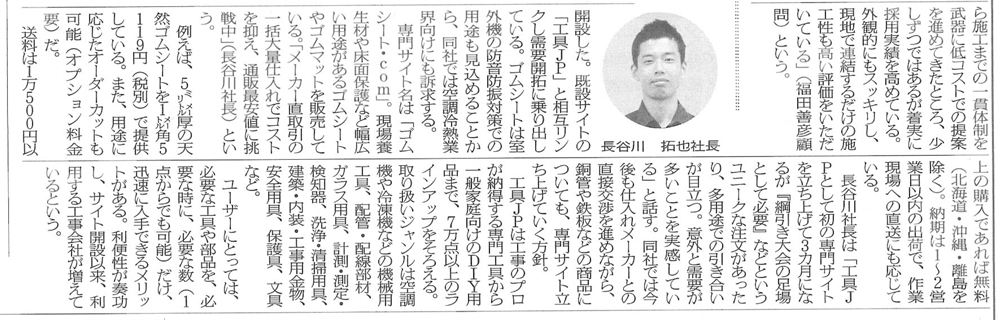 ら施工までの一貫体制を
武器に低コストでの提案
を進めてきたところ、少
しずつではあるが着実に
採用実績を高めている。
外観的にもスッキリし、
現地で連結するだけの施
工性も高い評価をいただ
いている」(福田善彦顧
問)という。
長谷川 拓也社長
開設した。既設サイトの
「工具JP」と相互リン
クし需要開拓に乗り出し
ている。ゴムシートは室
外機の防音防振対策での
用途も見込めることか
ら、同社では空調冷熱業
界向けにも訴求する。
専門サイト名は「ゴム
シート・com」。現場養
生材や床面保護など幅広
い用途があるゴムシート
やゴムマットを販売して
いる。「メーカー直取引の
一括大量仕入れでコスト
を抑え、通販最安値に挑
戦中」(長谷川社長)とい
う。
例えば、5㍉厚の天
然ゴムシートを1㍍角5
119円(税別)で提供
している。また、用途に
応じたオーダーカットも
可能(オプション料金
要)だ。
送料は1万5000円以
上の購入であれば無料
(北海道・沖縄・離島を
除く)。納期は1~2営
業日以内の出荷で、作業
現場への直送にも応じて
いる。
長谷川社長は「工具J
Pとして初の専門サイト
を立ち上げて3カ月にな
るが『綱引き大会の足場
として必要』などという
ユニークな注文があった
り、多用途での引き合い
が目立つ。意外と需要が
多いことを実感してい
る」と話す。同社では今
後も仕入れメーカーとの
直接交渉を進めながら、
銅管や鉄板などの商品に
ついても、専門サイト立
ち上げていく方針。
工具JPは工事のプロ
が納得する専門工具から
一般家庭向けのDIY用
品まで、7万点以上のラ
インアップをそろえる。
取り扱いジャンルは空調
機や冷凍機などの機械用
工具、配管・配線部材、
ガラス用具、計測・測定・
検知器、洗浄・清掃用具、
建築・内装・工事用金物、
安全用具、保護具、文具
など。
ユーザーにとっては、
必要な工具や部品を、必
要な時に、必要な数(1
点からでも可能)だけ、
迅速に入手できるメリッ
トがある。利便性が奏功
し、サイト開設以来、利
用する工事会社が増えて
いるという。